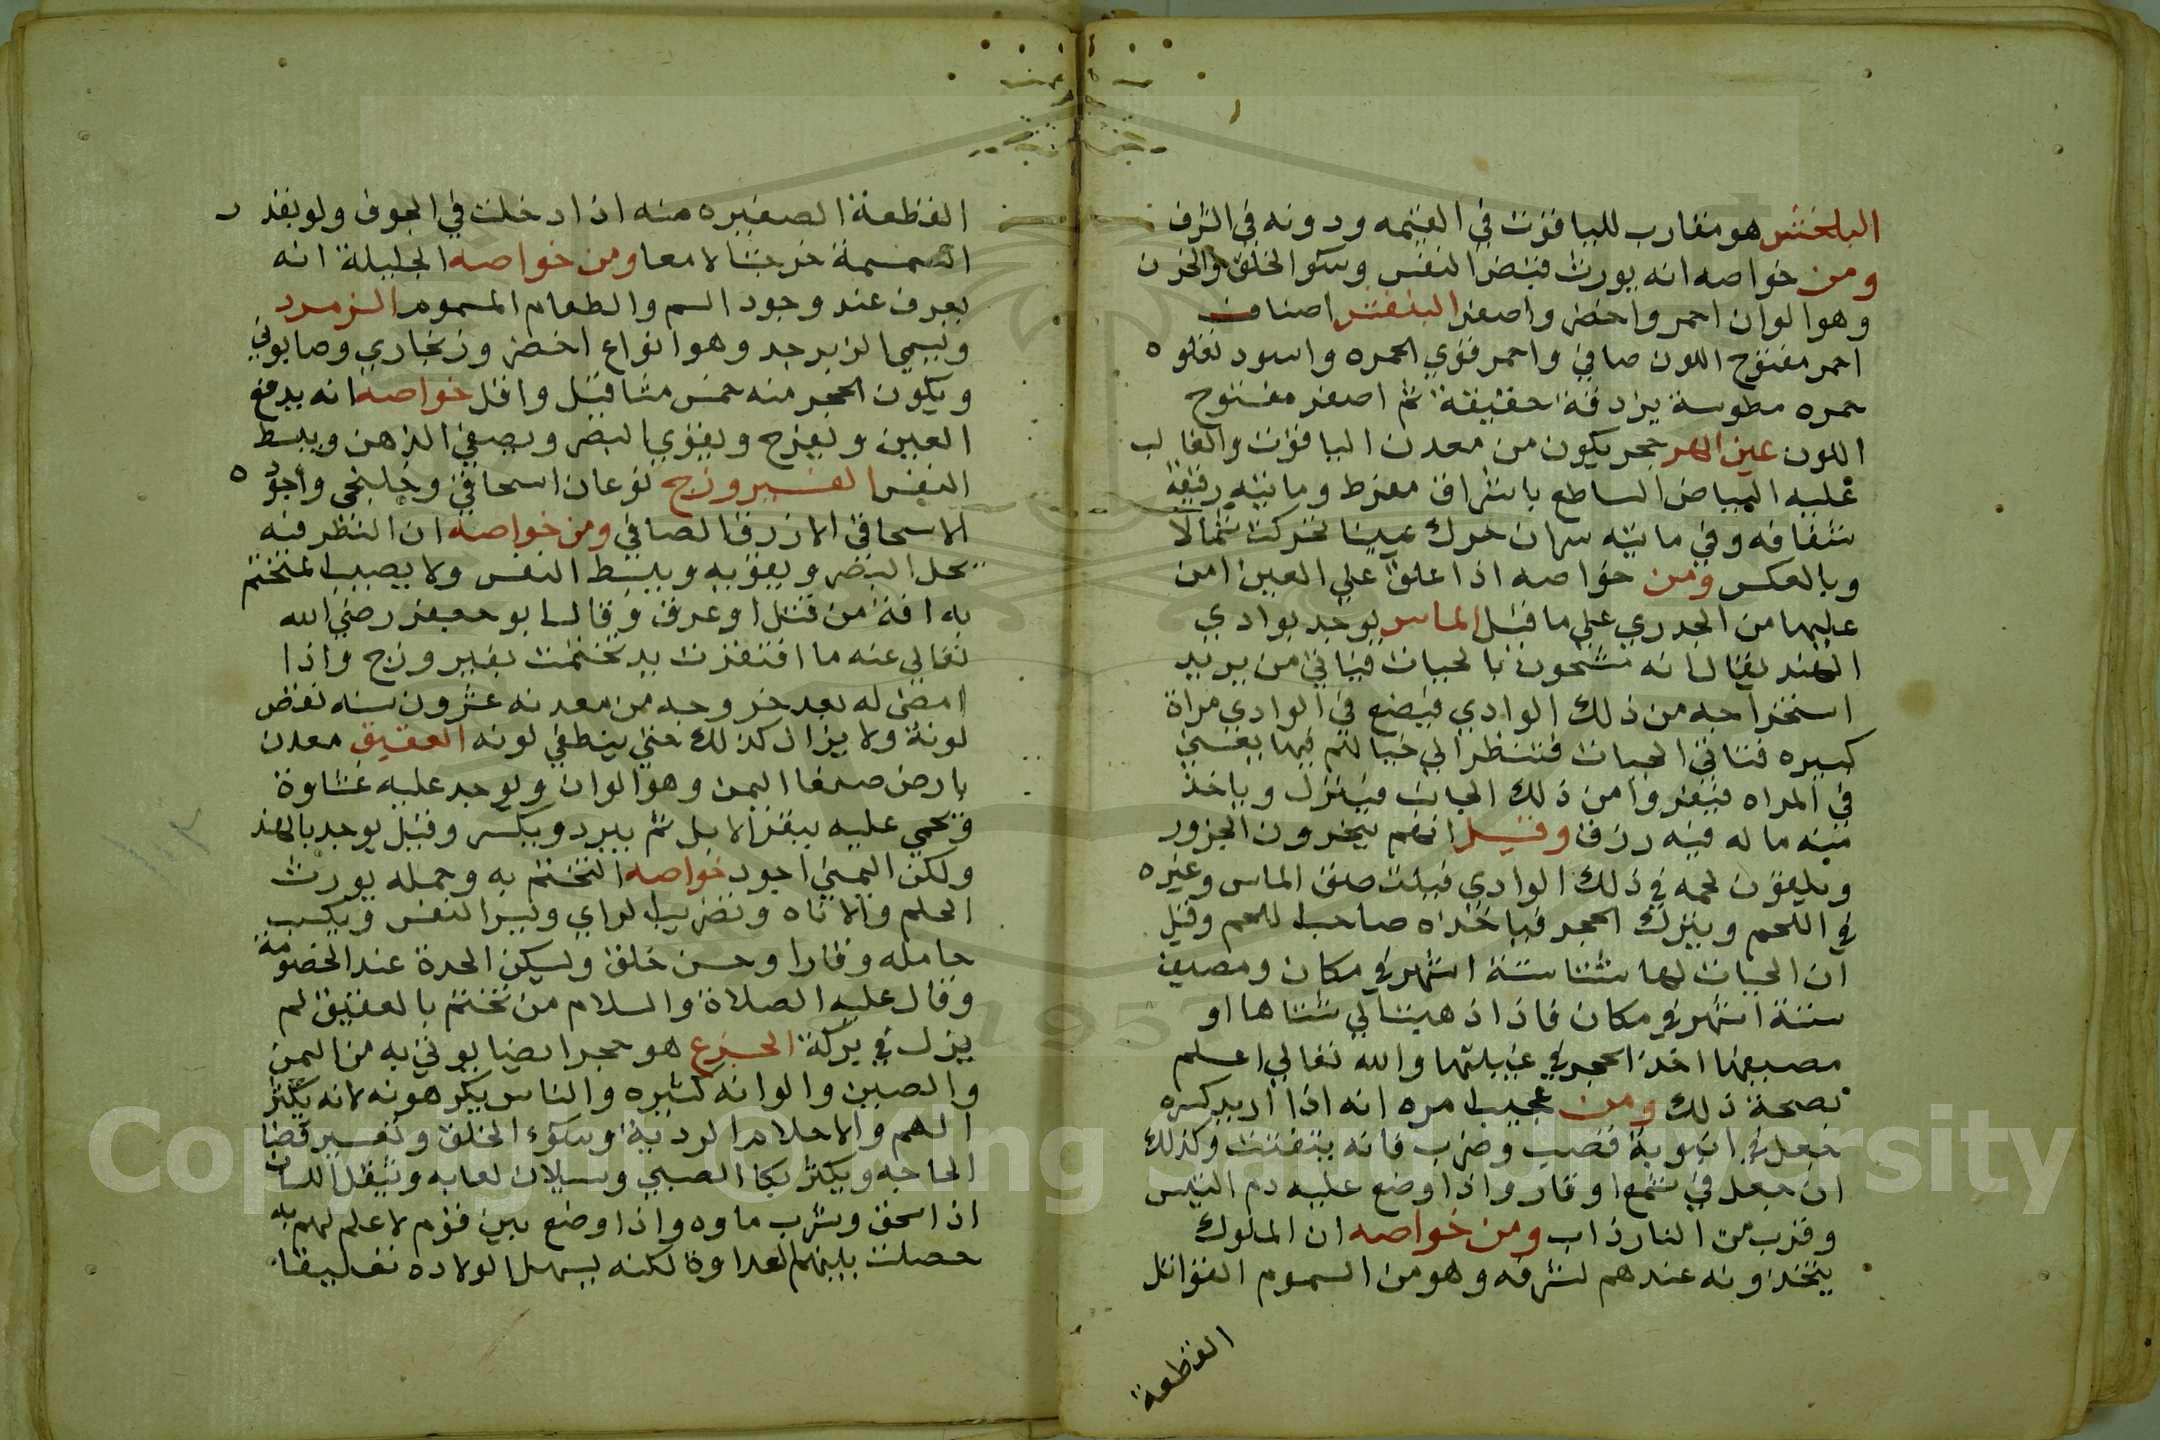 البلخش هو مقارب للياقوت في القيمه ودونه في الشرف
ومن خواصه انه يورث قبض النفس وسؤ الخلق والحزن
وهو الوان احمر واخضر واصفر البنفش اصناف
احمر مفتوح اللون صافي واحمر قوي الحمره واسود تعلوه
حمره مطوسة يزدقة حقيقة ثم اصفر مفتوح
اللون عين الهر حجر يكون من معدن الياقوت والغالب
عليه البياض الساطع باشراق مفرط ومائيه رقيقة
شفافه وفي مائيته سران حرك يمينا تحركت شمالا
وبالعكس ومن خواصه اذا علق علي العين امن
عليها من الجدري علي ما قيل الماس يوجد بوادي
الهند يقال انه مشحون بالحيات فياتي من يريد
استخراجه من ذلك الوادي فيضع في الوادي مراة
كبيره فتاتي الحيات فتنظر الي خيالهم فيها
في المراه فيفروا من ذلك الجانب فينزل وياخذ
منه ما له فيه رزق وقيل انهم ينحرون الجزور
ويلقون لحمه في ذلك الوادي الماس وغيره
في اللحم ويترك الحجر فياخذاه صاحب اللحم وقيل
ان الحيات لها مشتا ستة اشهر في مكان ومصيف
ستة اشهر في مكان فاذا ذهبت الي مشتاها او
مصيفها اخذ الحجر في غيبتها والله تعالي اعلم
بصحة ذلك ومن عجيب امره انه اذا اريد كسره
جعل في انبوبة قصب وضرب فانه يتفتت وكذلك
ان جعل في شمع او قار واذا وضع عليه دم التيس
وقرب من النار ذاب ومن خواصه ان الملوك
يتخذونه عندهم لشرفه وهو من السموم القواتل
القطعة
القطعة الصغيره منه اذا دخلت في الجوف ولو بقدر
السمسمة خرجت الامعا ومن خواصه الجليلة انه
يعرف عند وجود السم والطعام المسموم الزمرد
ويسمي الزبرجد وهو انواع اخضر وزنجاري وصابوني
ويكون الحجر منه خمس مثاقيل واقل خواصه انه يدفع
العين ويفرح ويقوي البصر ويصفي الذهن ويبسط
النفس الفيروزج نوعان اسحاقي وخلنجي واجوده
الاسحاقي الازرق الصافي ومن خواصه ان النظر فيه
يحل البصر ويقويه ويبسط النفس ولا يصيب المتختم
به افة من قتل او غرق وقال ابو جعفر رضي الله
تعالي عنه ما افتقرت يد تختمت بفيروزج واذا
امضي له بعد خروجه من معدنه عشرون سنه نقض
لونه ولا يزال كذلك حتي ينطفي لونه العقيق معدن
بارض صنعا اليمن وهو الوان ويوجد عليه غشاوة
ويحمي عليه ببعر الابل ثم يبرد ويكسر وقيل يوجد بالهند
ولكن اليمني اجود خواصه التختم به وحمله يورث
الحلم والاناه وتصويب الراي ويسر النفس ويكسب
حامله وقارا وحسن خلق ويسكن الحدة عند الخصومة
وقال عليه الصلاة والسلام من تختم بالعقيق لم
يزل في بركة الجزع هو حجر ايضا يوتي به من اليمن
والصين والوانه كثيره والناس يكرهونه لانه يكثر
الهم والاحلام الرديه وسوء الخلق وتعسير قضا
الحاجه ويكثر بكا الصبي وسيلان لعابه ويثقل اللسان
اذا سحق وشرب ماوه واذا وضع بين قوم لا علم لهم به
حصلت بينهم العداوة لكنه يسهل الولاده تعليقا
Copyright © King Saud University
1957